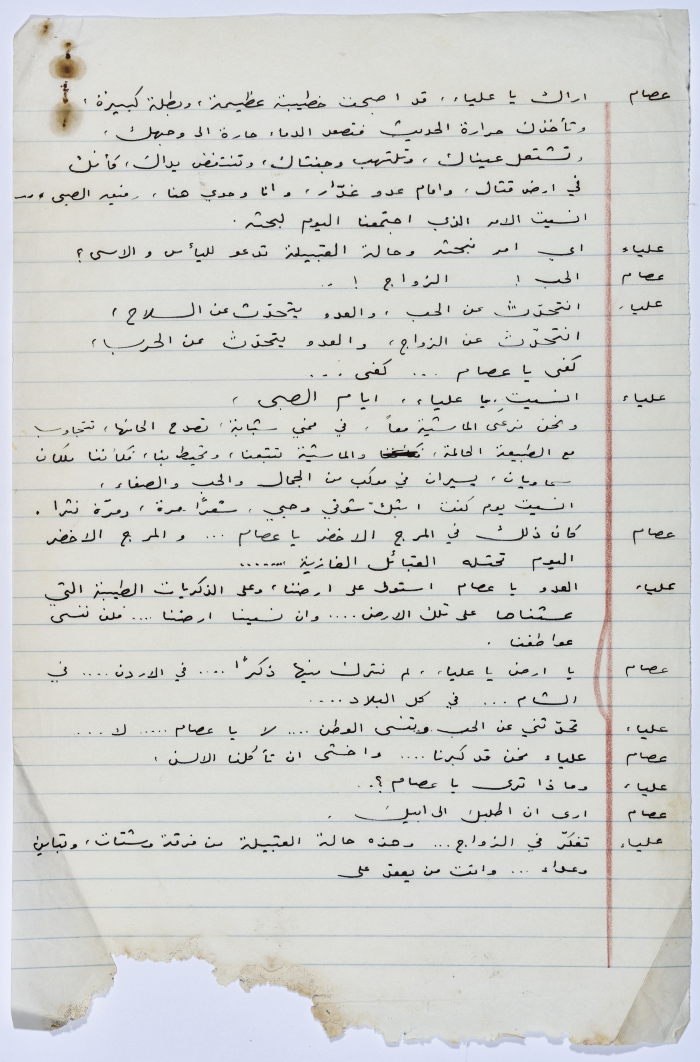 عصام اراك يا علياء، قد اصبحت خطيبة عظيمة، وبطلة كبيرة،
وتأخذك حرارة الحديث فتصعد الدماء حارة الى وجهك،
وتشتعل عيناك، وتلتهب وجنتاك، وتنتفض يداك، كأنك
في ارض قتال، وامام عدو غدّار، وانا وحدي هنا، رفيق الصبى
انسيت الامر الذي اجتمعنا اليوم لبحثه.
علياء اي امر نبحثه وحالة القبيلة تدعو لليأس والاسى؟
عصام الحب! الزواج! ..
علياء انتحدّث عن الحب، والعدو يتحدّث عن السلاح،
انتحدّث عن الزواج، والعدو يتحدّث عن الحرب،
كفى يا عصام ... كفى ...
علياء انسيت يا علياء، ايام الصبى،
ونحن نرعى الماشية معاً، في فمي شبّابة، تصدح الحانها، تتجاوب
مع الطبيعة الحالمة، والماشية تتبعنا، وتحيط بنا، فكأننا ملكان
سماويان، يسيران في موكب من الجمال والحب والصفاء،
انسيت يوم كنت ابثك شوقي وحبي، شعرًا مرة، ومرّة نثرا.
عصام كان ذلك في المرج الاخضر يا عصام ... والمرج الاخضر
اليوم تحتله القبائل الغازية ......
علياء العدو يا عصام استولى على ارضنا، وعلى الذكريات الطيبة التي
عشناها على تلك الارض .... وان نسينا ارضنا .... فلن ننسى
عواطفنا.
عصام يا ارض يا علياء، لم نترك فيها ذكرًا .... في الاردن .... في
الشام ... في كل البلاد ....
علياء تحدّثني عن الحب وتنسى الوطن .... لا يا عصام ..... لا ...
عصام علياء نحن قد كبرنا .... واخشى ان تأكلنا الالسن.
علياء وماذا ترى يا عصام؟ ..
عصام ارى ان اطلبك الى ابيك.
علياء تفكّر في الزواج ... وهذه حالة القبيلة من فرقة وشتات، وتباين
وعداء ... وانت من يعقد على